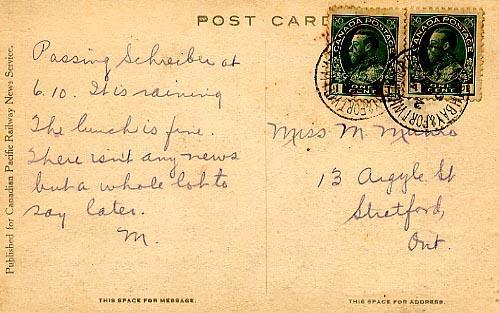 POST CARD
CANADA POSTAGE
ONE CENT
1 1
CANADA POSTAGE
ONE CENT
1 1
Published for Canadian Pacific Railway News Service.
Passing Schreiber at
6.10. It is raining
The lunch is fine.
There isn't any news
but a whole lot to
say later.
M.
Miss M. Munro
13 Argyle St
Stratford,
Ont.
THIS SPACE FOR MESSAGE.
THIS SPACE FOR ADDRESS.